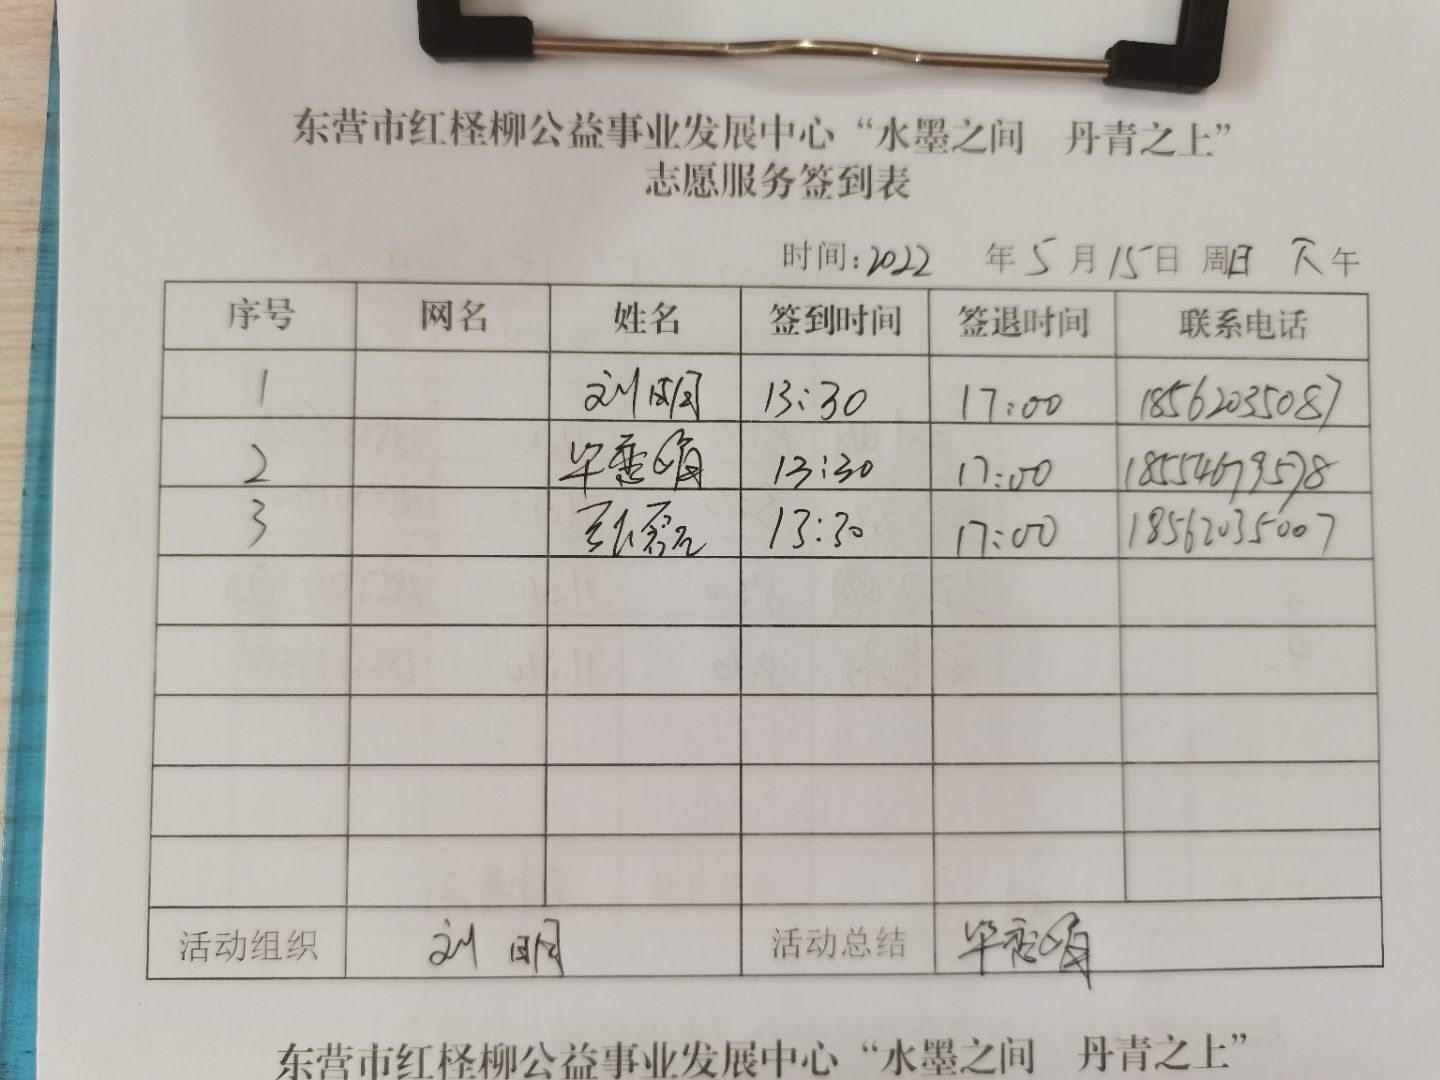 东营市红柽柳公益事业发展中心“水墨之间 丹青之上”
志愿服务签到表
时间:2022 年5月15日 周日 下午
序号 网名 姓名 签到时间 签退时间 联系电话
1 刘明 13:30 17:00 18562035087
2 13:30 17:00 18554679578
3 13:30 17:00 18562035007
活动组织 刘明 活动总结
东营市红柽柳公益事业发展中心“水墨之间 丹青之上”